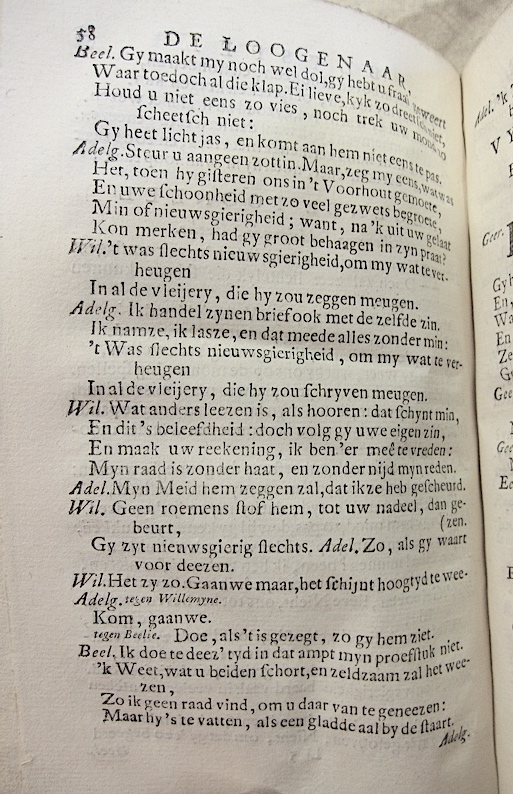 58 DE LOOGENAAR,
Beel. Gy maakt my noch wel dol, gy hebt u fraai geweert
Waar toe doch al die klap. Ei lieve, kyk zo dreetsch niet,
Houd u niet eens zo vies, noch trek uw mond zo
ſcheetſch niet:
Gy heet licht jas, en komt aan hem niet eens te pas.
Adelg. Steur u aan geen zottin. Maar, zeg my eens, wat was
Het, toen hy giſteren ons in 't Voorhout gemoete,
En uwe ſchoonheid met zo veel gezwets begroete,
Min of nieuwsgierigheid; want, na 'k uit uw gelaat
Kon merken, had gy groot behaagen in zyn praat?
Wil. 't was ſlechts nieuwsgierigheid, om my wat te ver-
heugen
In al de vleijery, die hy zou zeggen meugen.
Adelg. Ik handel zynen brief ook met de zelfde zin.
Ik namze, ik lasze, en dat meede alles zonder min:
't Was ſlechts nieuwsgierigheid, om my wat te ver-
heugen
In al de vleijery, die hy zou ſchryven meugen.
Wil. Wat anders leezen is, als hooren: dat ſchynt min,
En dit 's beleefdheid: doch volg gy uwe eigen zin,
En maak uw reekening, ik ben 'er meê te vreden:
Myn raad is zonder haat, en zonder nijd myn reden.
Adel. Myn Meid hem zeggen zal, dat ik ze heb geſcheurd.
Wil. Geen roemens ſtof hem, tot uw nadeel, dan ge-
beurt, (zen.
Gy zyt nieuwsgierig ſlechts. Adel. Zo, als gy waart
voor deezen.
Wil. Het zy zo. Gaan we maar, het ſchijnt hoog tyd te wee-
Adelg. tegen Willemyne.
Kom, gaan we.
tegen Beelie. Doe, als 't is gezegt, zo gy hem ziet.
Beel. Ik doe te deez' tyd in dat ampt myn proefſtuk niet.
'k Weet, wat u beiden ſchort, en zeldzaam zal het wee-
zen,
Zo ik geen raad vind, om u daar van te geneezen:
Maar hy 's te vatten, als een gladde aal by de ſtaart.
Adelg.